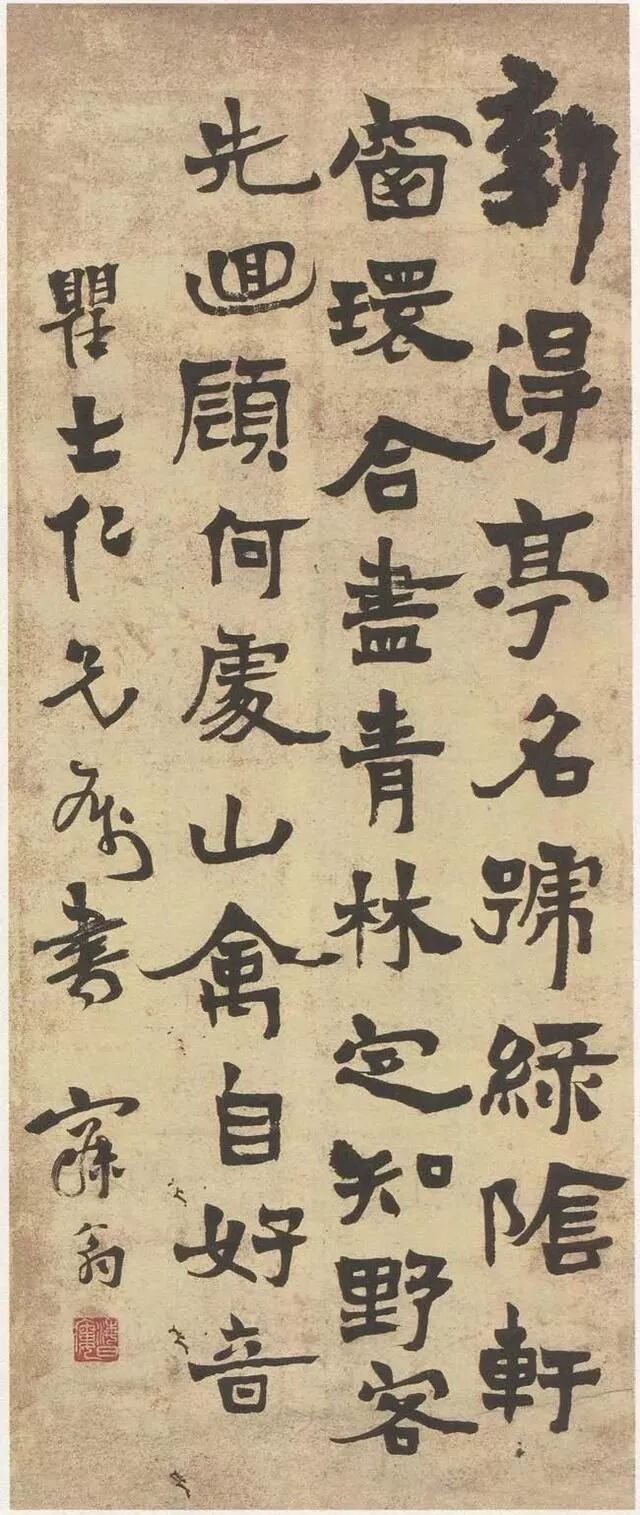 新得亭名號綠陰軒
窗環合盡青林定知野客
先迴顧何處山禽自好音
瞿士仁兄屬書 寐翁